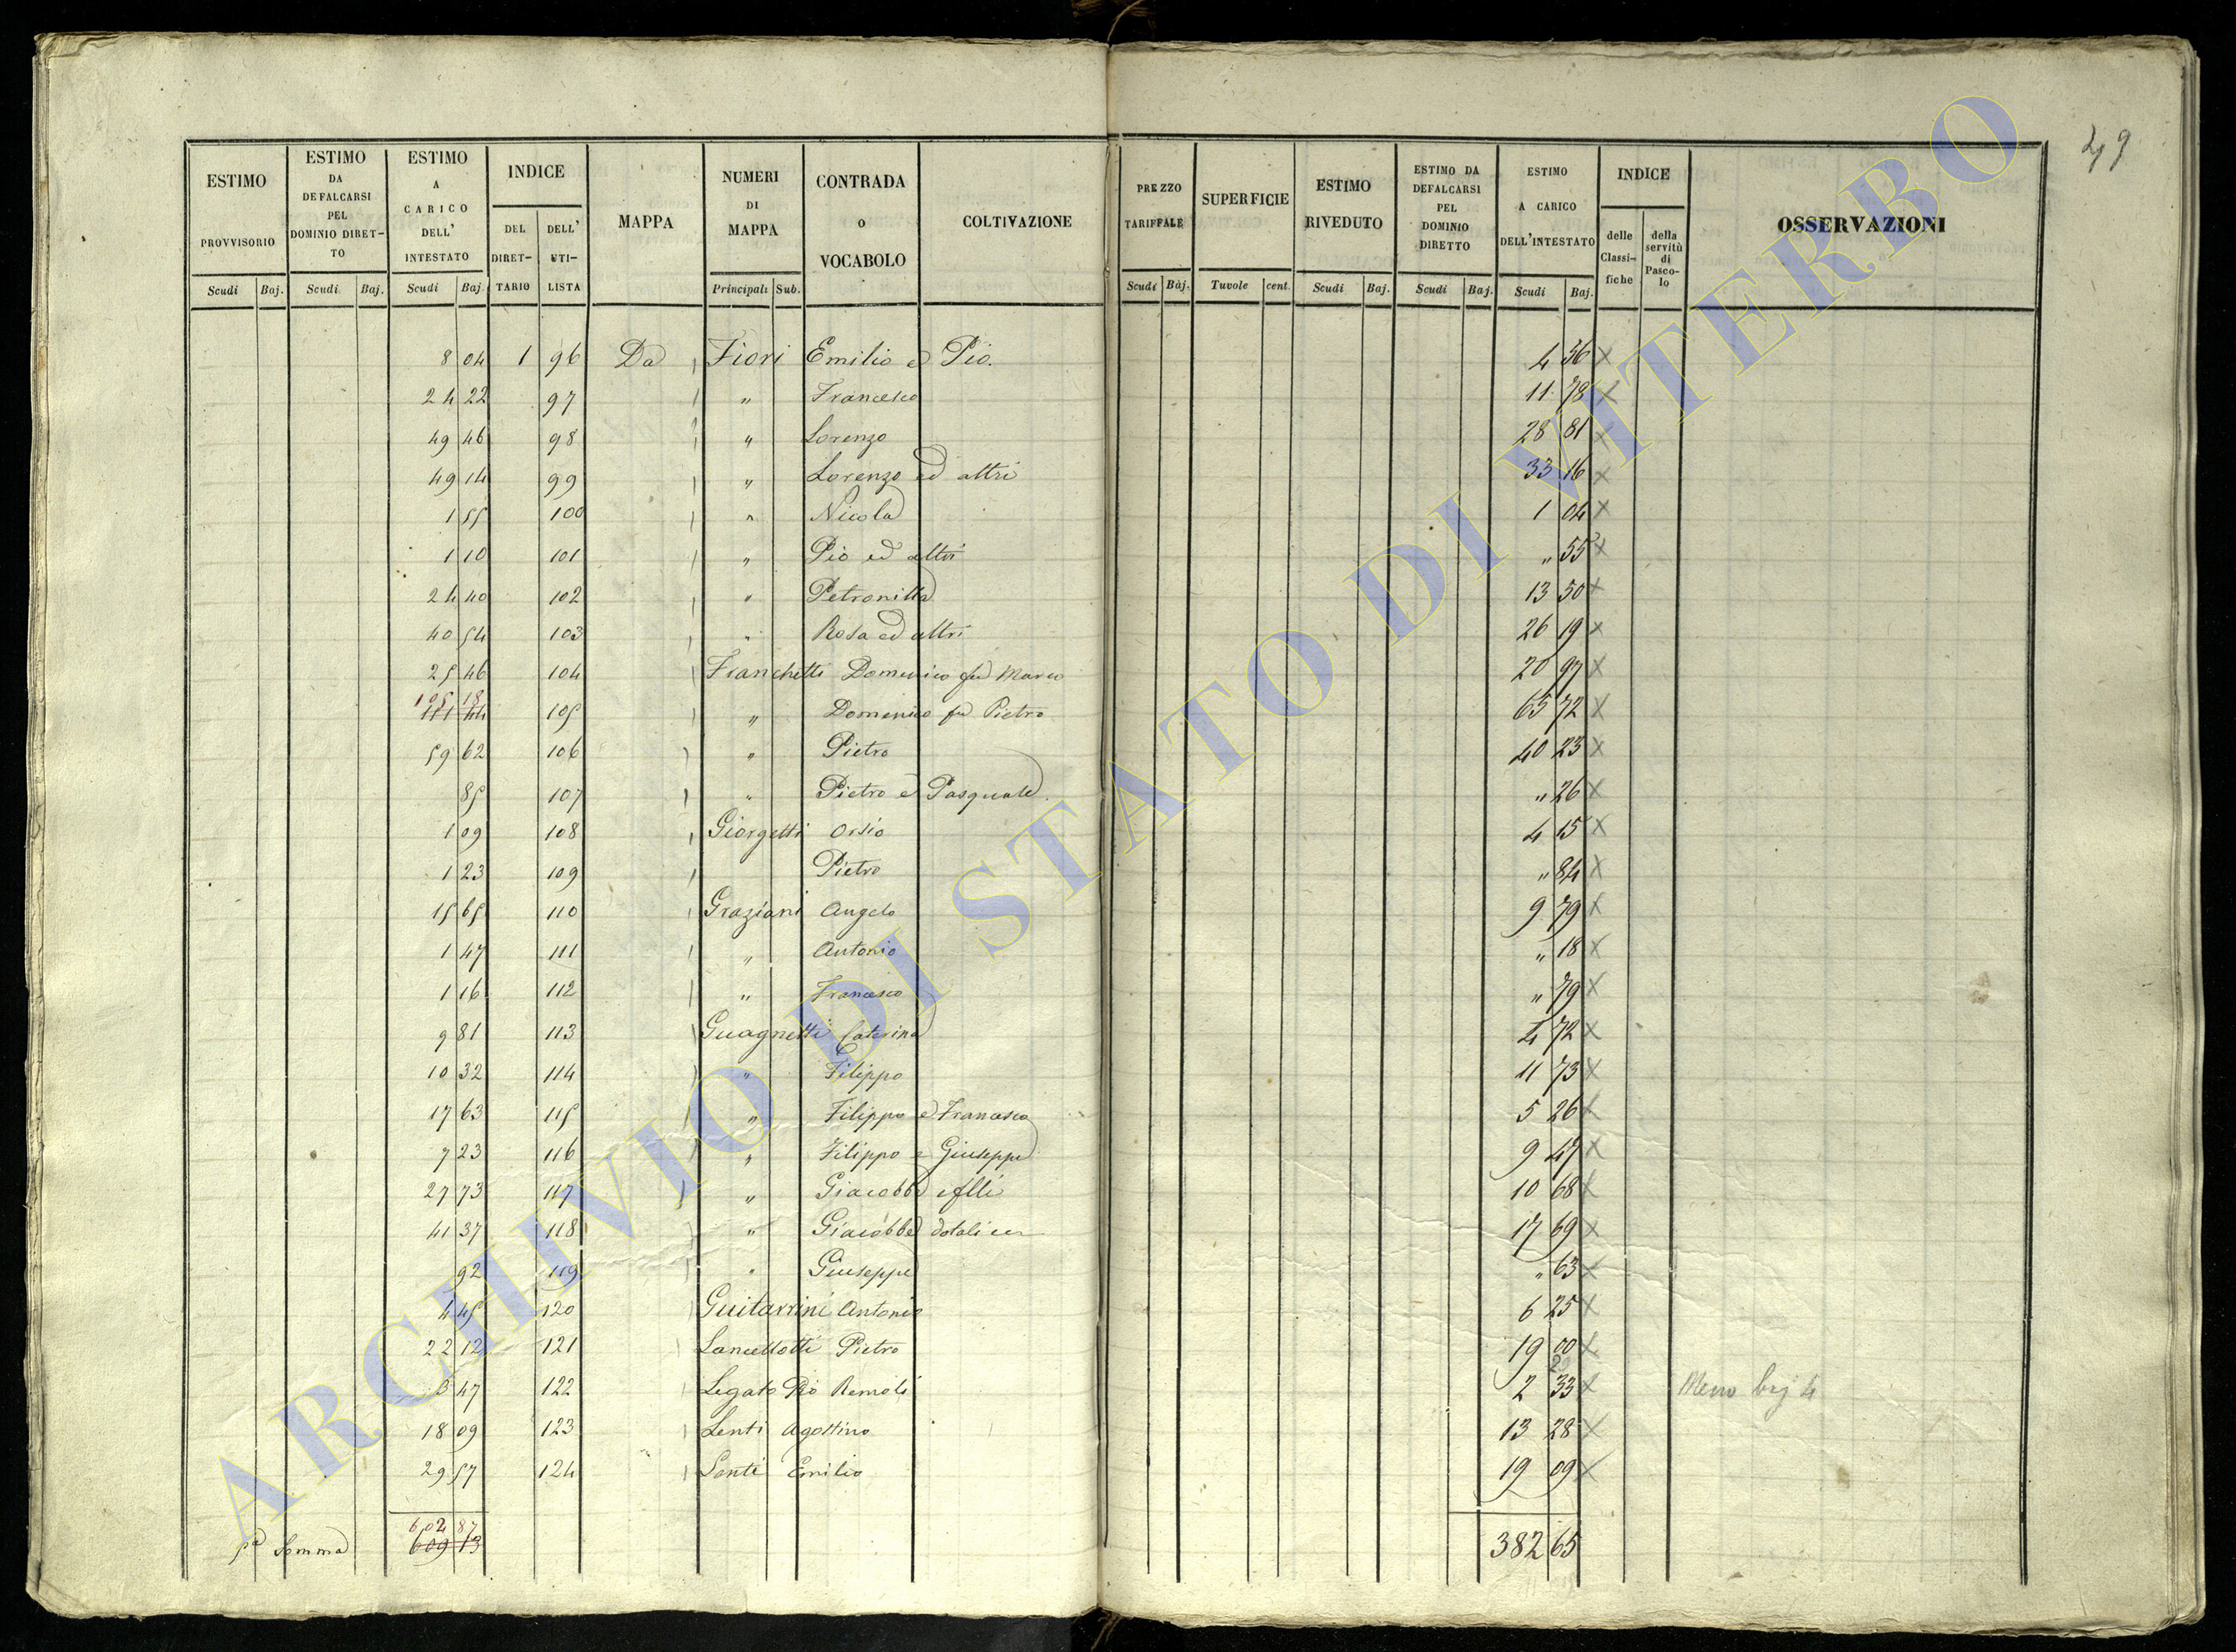 49
ESTIMO PROVVISORIO
ESTIMO DA DEFALCARSI PEL DOMINIO DIRET-TO
ESTIMO A CARICO DELL' INTESTATO
INDICE
DEL DIRET-TARIO
DELL' UTI-LISTA
MAPPA
NUMERI DI MAPPA
CONTRADA o VOCABOLO
COLTIVAZIONE
PREZZO TARIFFALE
SUPERFICIE
ESTIMO RIVEDUTO
ESTIMO DA DEFALCARSI PEL DOMINIO DIRETTO
ESTIMO A CARICO DELL'INTESTATO
INDICE
delle Classi-fiche
della servitù di Pasco-lo
OSSERVAZIONI
Scudi Baj. Scudi Baj. Scudi Baj. Principali Sub. Scudi Baj. Tavole cent. Scudi Baj. Scudi Baj. Scudi Baj.
8 04 1 96 Da Fiori Emilio e Pio. 4 56 x
24 22 97 " Francesco 11 78 x
49 46 98 " Lorenzo 28 81 x
49 14 99 " Lorenzo ed altri 33 16 x
1 55 100 " Nicola 1 04 x
1 10 101 " Pio ed altri " 55 x
24 40 102 " Petronilla 13 50 x
40 54 103 " Rosa ed altri 26 19 x
25 46 104 Franchetti Domenico fu Marco 20 97 x
105 18
111 44 105 " Domenico fu Pietro 65 72 x
59 62 106 " Pietro 40 23 x
85 107 " Pietro e Pasquale " 26 x
1 09 108 Giorgetti Orsio 4 15 x
1 23 109 Pietro " 84 x
15 65 110 Graziani Angelo 9 79 x
1 47 111 " Antonio " 18 x
1 16 112 " Francesco " 79 x
9 81 113 Guagnetti Caterina 4 72 x
10 32 114 " Filippo 11 73 x
17 63 115 " Filippo e Francesco 5 26 x
7 23 116 " Filippo e Giuseppe 9 47 x
27 73 117 " Giacobbe e flli 10 68 x
41 37 118 " Giacobbe dotali 17 69 x
92 119 " Giuseppe " 63 x
4 45 120 Guitarrini Antonio 6 25 x
22 12 121 Lancellotti Pietro 19 00 x
3 47 122 Legato Pio Remoli 2 33 x Meno baj 4
18 09 123 Lenti Agostino 13 28 x
29 57 124 Lenti Emilio 19 09 x
602 87
Somma 609 13 382 65
ARCHIVIO DI STATO DI VITERBO